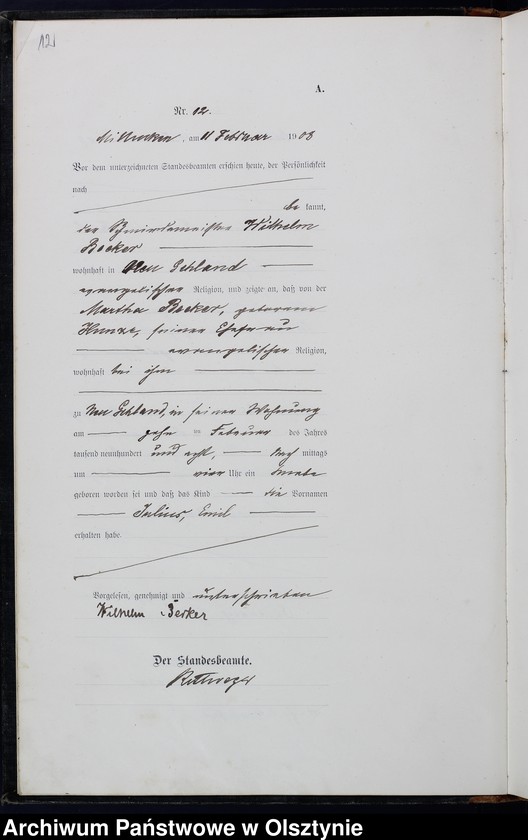 12
A.
Nr. 12.
am 11 Februar 1908
Vor dem unterzeichneten Standesbeamten erschien heute, der Persönlichkeit
nach
be kannt,
der Schmiedemeister Wilhelm
Becker
wohnhaft in Neu Schland
evangelischer Religion, und zeigte an, daß von der
Martha Becker, geborenen
seiner Ehefrau
evangelischer Religion,
wohnhaft bei ihm
zu Neu Schland, in seiner Wohnung
am zehn ten Februar des Jahres
tausend neunhundert und acht, Nach mittags
um vier Uhr ein Knabe
geboren worden sei und daß das Kind die Vornamen
Julius, Emil
erhalten habe.
Vorgelesen, genehmigt und unterschrieben
Wilhelm Becker
Der Standesbeamte.
Archiwum Państwowe w Olsztynie